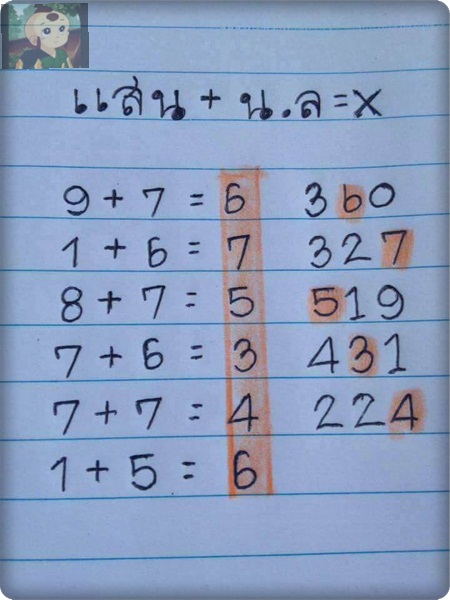 แสน + น.ล = X
9 + 7 = 6 360
1 + 6 = 7 327
8 + 7 = 5 519
7 + 6 = 3 431
7 + 7 = 4 224
1 + 5 = 6